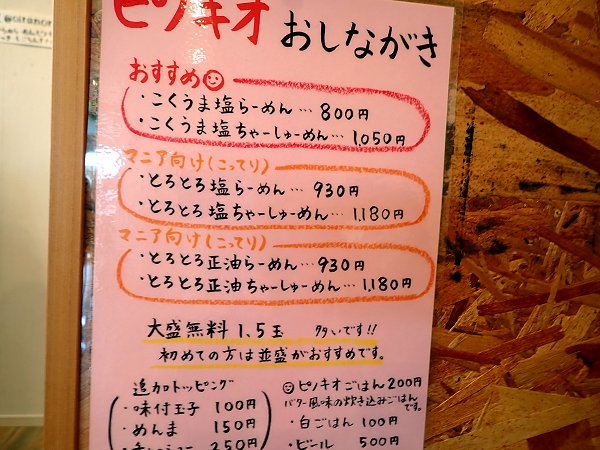 ピノキオ おしながき
おすすめ
・こくうま塩らーめん…800円
・こくうま塩ちゃーしゅーめん…1,050円
マニア向け(こってり)
・とろとろ塩らーめん…930円
・とろとろ塩ちゃーしゅーめん…1,180円
マニア向け(こってり)
・とろとろ正油らーめん…930円
・とろとろ正油ちゃーしゅーめん…1,180円
大盛無料 1.5玉 多いです!!
初めての方は並盛がおすすめです。
追加トッピング
・味付玉子 100円
・めんま 150円
・チャーシュー 250円
ピノキオごはん 200円
バター風味の炊き込みごはんです。
・白ごはん 100円
・ビール 500円